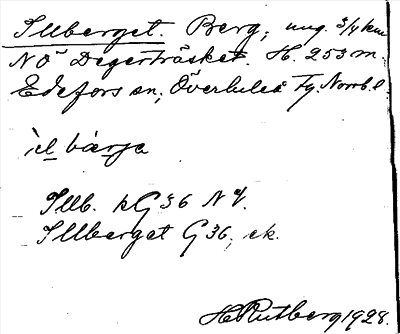 Illberget. Berg; ung. 3/4 km
NÖ Degerträsket. H. 253 m.
Edefors sn; Överluleå Fg. Norrb. l.
ìl bærja
Illb. kG 36 N4.
Illberget G 36; ek.
H Rutberg 1928.